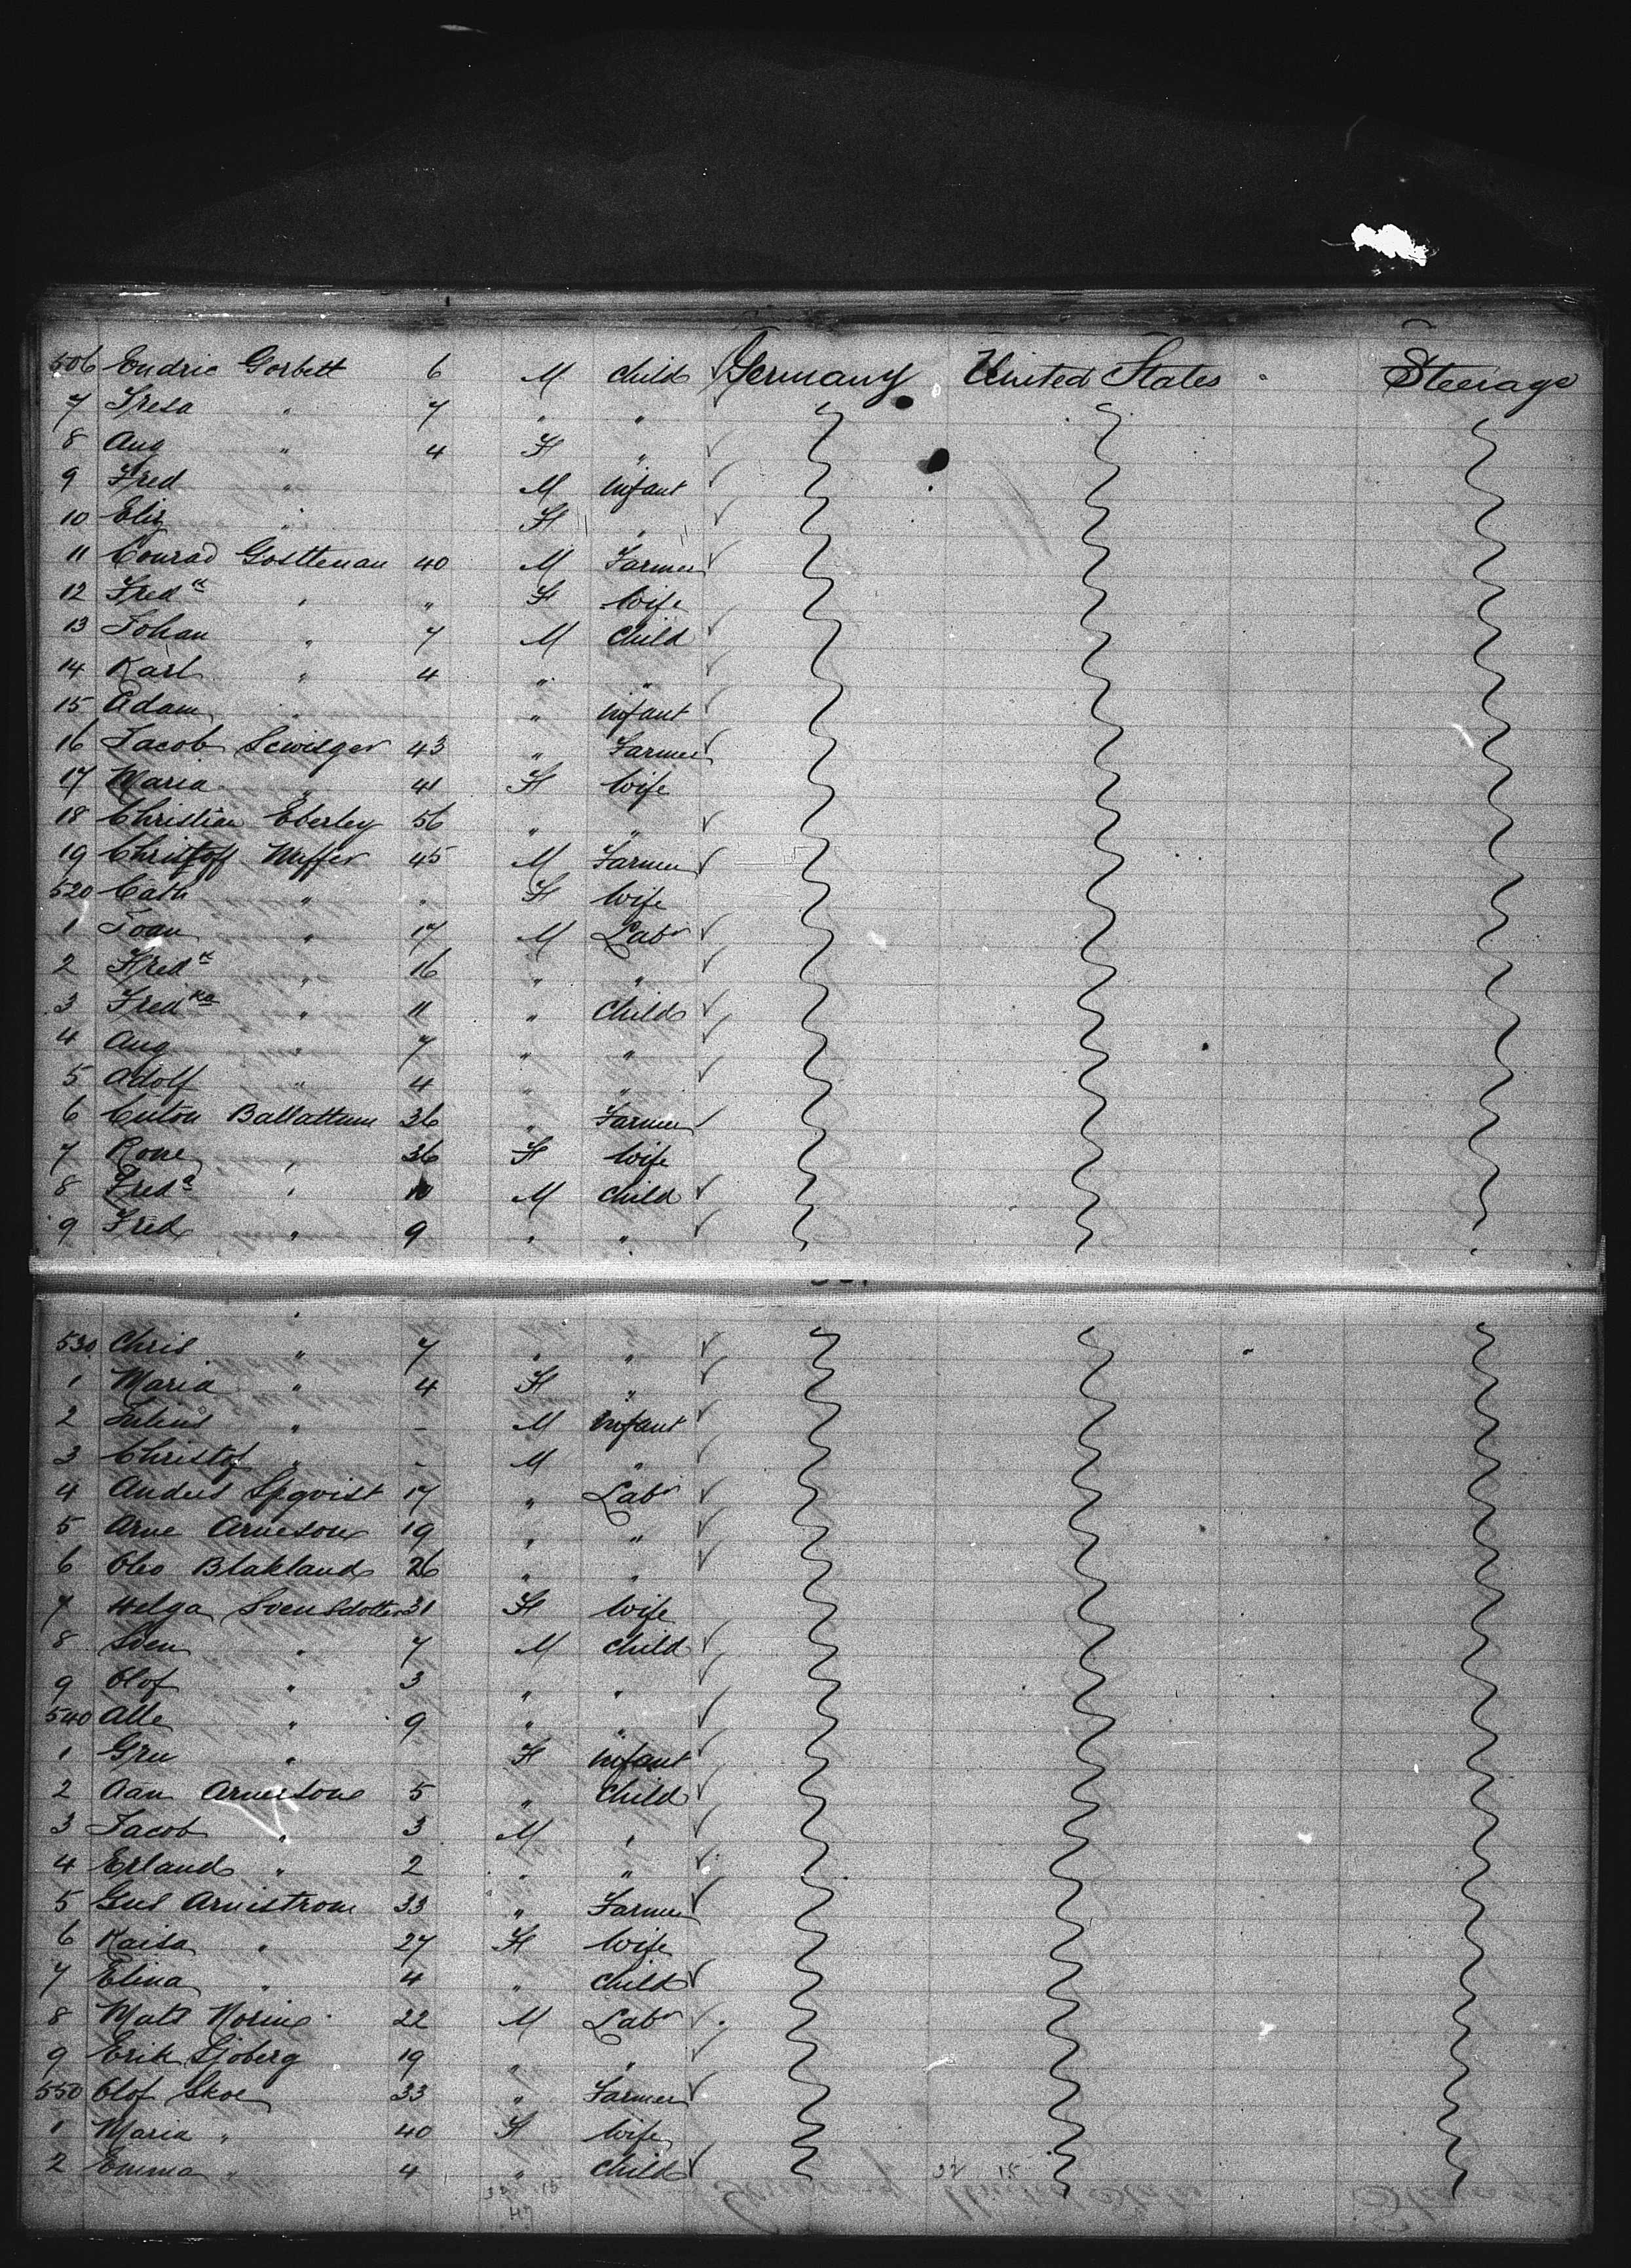 506 Endric Gorbett 6 M child Germany United States Steerage
7 Fresa " 7 " "
8 Aug " 4 F "
9 Fred " M infant
10 Eliz " F "
11 Conrad Gosttenan 40 M Farmer
12 Fredk " " F Wife
13 Johan " 7 M Child
14 Karl " 4 " "
15 Adam " " infant
16 Jacob 43 " Farmer
17 Maria " 41 F Wife
18 Christian Eberley 56 " "
19 Christoff 45 M Farmer
520 Cath " " F Wife
1 Joan " 17 M Labr
2 Fredk " 16 " "
3 Fredka " 11 " Child
4 Aug " 7 " "
5 Adolf " 4 " "
6 Ballattum 36 " Farmer
7 Rone " 36 F Wife
8 Freda " M child
9 Fred " 9 " "
530 Chris " 7 " "
1 Maria " 4 F "
2 Julius " - M infant
3 Christof " - M "
4 Anders 17 " Labr
5 Arne Arneson 19 " "
6 Oleo Blakland 26 " "
7 Helga Svensdotter 31 F Wife
8 Sven " 7 M child
9 Olof " 3 " "
540 Alle " 9 " "
1 Gru " F infant
2 Aan Arneson 5 " Child
3 Jacob " 3 M "
4 Erland " 2 " "
5 Gus Arnistrom 33 " Farmer
6 Kaisa " 27 F Wife
7 Elina " 4 " child
8 Mats Norins 22 M Labr
9 Erik Sjoberg 19 " "
550 Olof Skoe 33 " Farmer
1 Maria " 40 F Wife
2 Emma " 4 " child
32 15
47